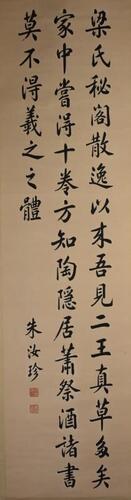 梁氏秘閣散逸以來吾見二王真草多矣
家中嘗得十卷方知陶隱居蕭祭酒諸書
莫不得羲之之體
朱汝珍